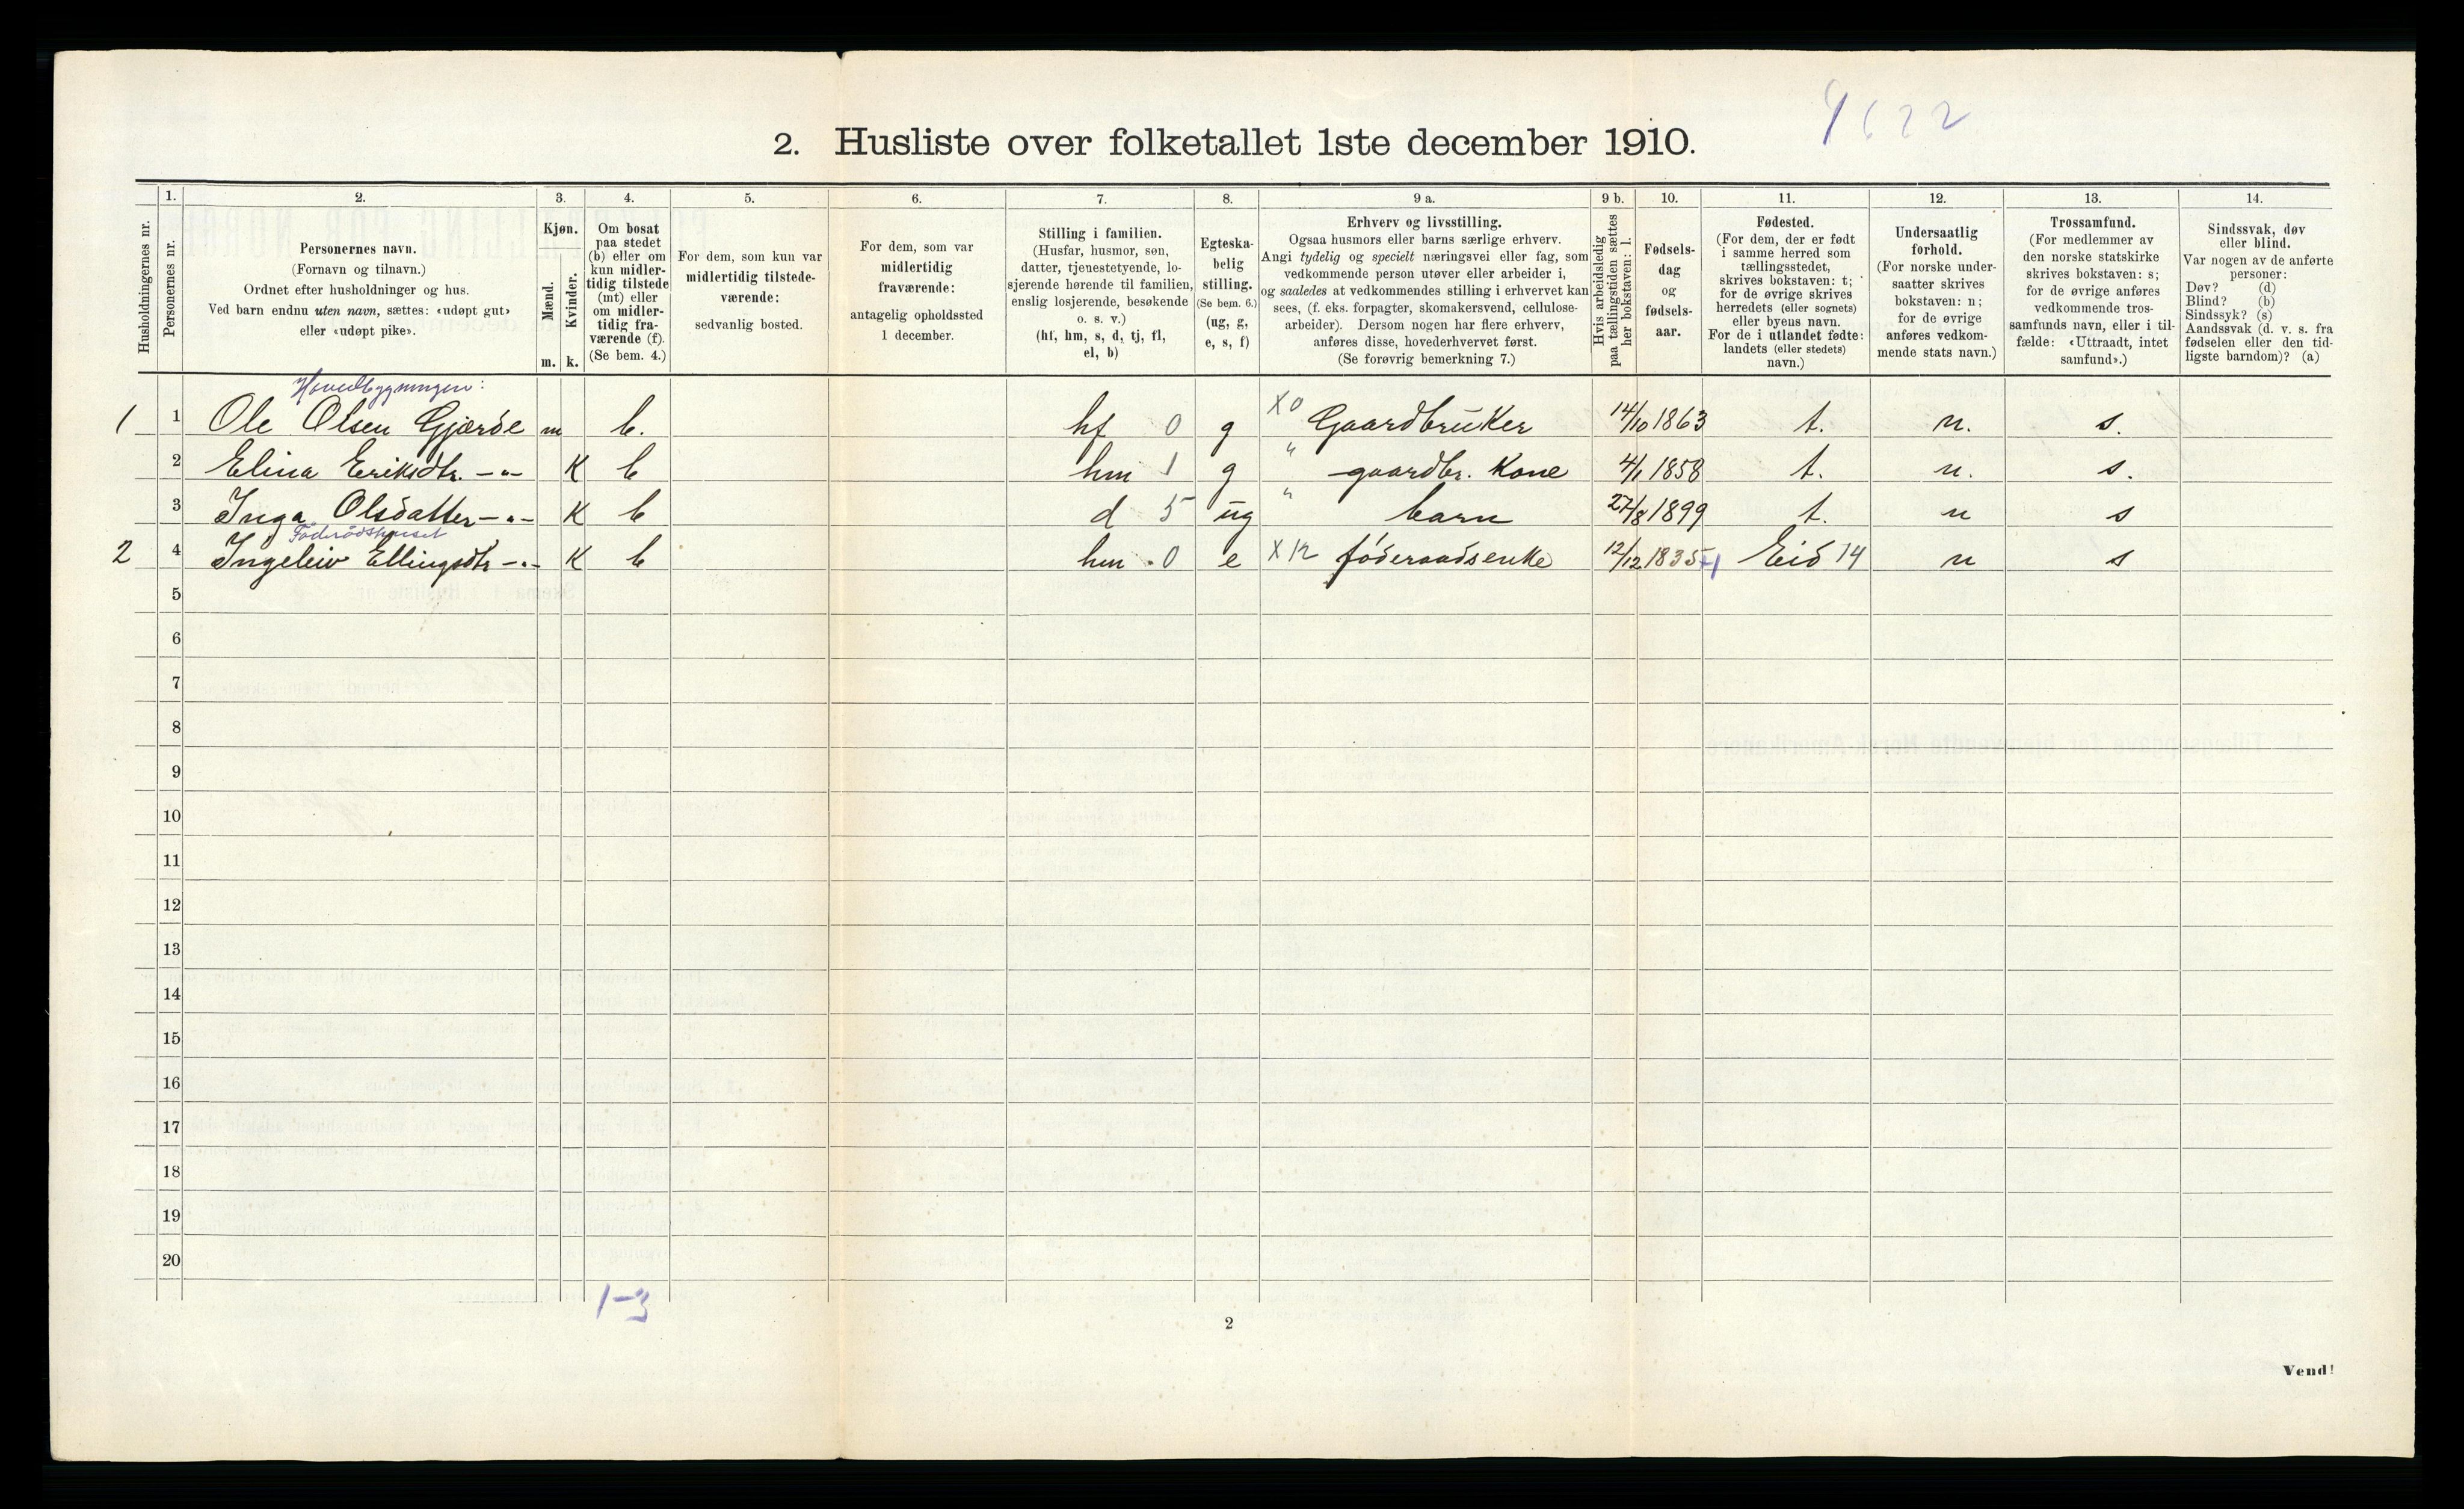 2. Husliste over folketallet 1ste december 1910.
Husholdningernes nr.
1.
Personernes nr.
2.
Personernes navn.
(Fornavn og tilnavn.)
Ordnet efter husholdninger og hus.
Ved barn endnu uten navn, sættes: «udøpt gut»
eller «udøpt pike».
3.
Kjøn.
Mænd.
Kvinder.
m. k.
4.
Om bosat
paa stedet
(b) eller om
kun midler-
tidig tilstede
(mt) eller
om midler-
tidig fra-
værende (f).
(Se bem. 4.)
5.
For dem, som kun var
midlertidig tilstede-
værende:
sedvanlig bosted.
6.
For dem, som var
midlertidig
fraværende:
antagelig opholdssted
1 december.
7.
Stilling i familien.
(Husfar, husmor, søn,
datter, tjenestetyende, lo-
sjerende hørende til familien,
enslig losjerende, besøkende
o. s. v.)
(hf, hm, s, d, tj, fl,
el, b)
8.
Egteska-
belig
stilling.
(Se bem. 6.)
(ug, g,
e, s, f)
9 a.
Erhverv og livsstilling.
Ogsaa husmors eller barns særlige erhverv.
Angi tydelig og specielt næringsvei eller fag, som
vedkommende person utøver eller arbeider i,
og saaledes at vedkommendes stilling i erhvervet kan
sees, (f. eks. forpagter, skomakersvend, cellulose-
arbeider). Dersom nogen har flere erhverv,
anføres disse, hovederhvervet først.
(Se forøvrig bemerkning 7.)
9 b.
Hvis arbeidsledig
paa tællingstiden sættes
her bokstaven: l.
10.
Fødsels-
dag
og
fødsels-
aar.
11.
Fødested.
(For dem, der er født
i samme herred som
tællingsstedet,
skrives bokstaven: t;
for de øvrige skrives
herredets (eller sognets)
eller byens navn.
For de i utlandet fødte:
landets (eller stedets)
navn.)
12.
Undersaatlig
forhold.
(For norske under-
saatter skrives
bokstaven: n;
for de øvrige
anføres vedkom-
mende stats navn.)
13.
Trossamfund.
(For medlemmer av
den norske statskirke
skrives bokstaven: s;
for de øvrige anføres
vedkommende tros-
samfunds navn, eller i til-
fælde: «Uttraadt, intet
samfund».)
14.
Sindssvak, døv
eller blind.
Var nogen av de anførte
personer:
Døv? (d)
Blind? (b)
Sindssyk? (s)
Aandssvak (d. v. s. fra
fødselen eller den tid-
ligste barndom)? (a)
Hovedbygningen:
1 1 Ole Olsen Gjærde m b. hf 0 g X0 Gaardbruker 14/10 1863 t. n. s.
2 Elina Eriksdtr. -"- K b hm 1 g " gaardbr. Kone 4/1 1858 t. n. s.
3 Inga Olsdatter -"- K b d 5 ug " barn 27/8 1899 t. n s
Föderådshuset
2 4 Ingeleiv Ellingsdtr -"- K b hm 0 e X12 föderaadsenke 12/12 1835 Eid 14 n s
5
6
7
8
9
10
11
12
13
14
15
16
17
18
19
20
1-3
2
Vend!